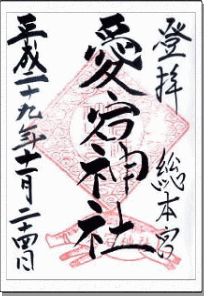 登拝
総本宮
愛宕神社
平成二十九年十一月二十四日